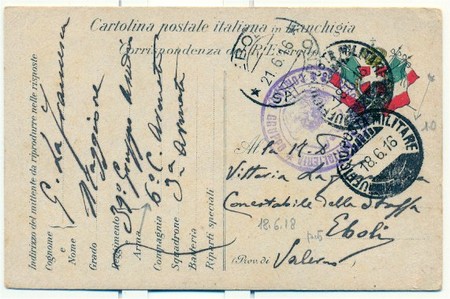 Cartolina postale italiana in franchigia
Corrispondenza del R. Esercito
EBOLI
21.6.18
POSTA MILITARE
18.6.18
Indirizzo del mittente da riprodurre nelle risposte
Cognome
e
Nome
G. La Francesca
Grado
Maggiore
Reggimento
Arma
39° Gruppo
Compagnia
Squadrone
Batteria
6° C. Armata
Riparti speciali
3a Armata
Alla
Vittoria La Francesca
Contestabile della Staffa
18.6.18
Eboli
(Prov. di Salerno
10